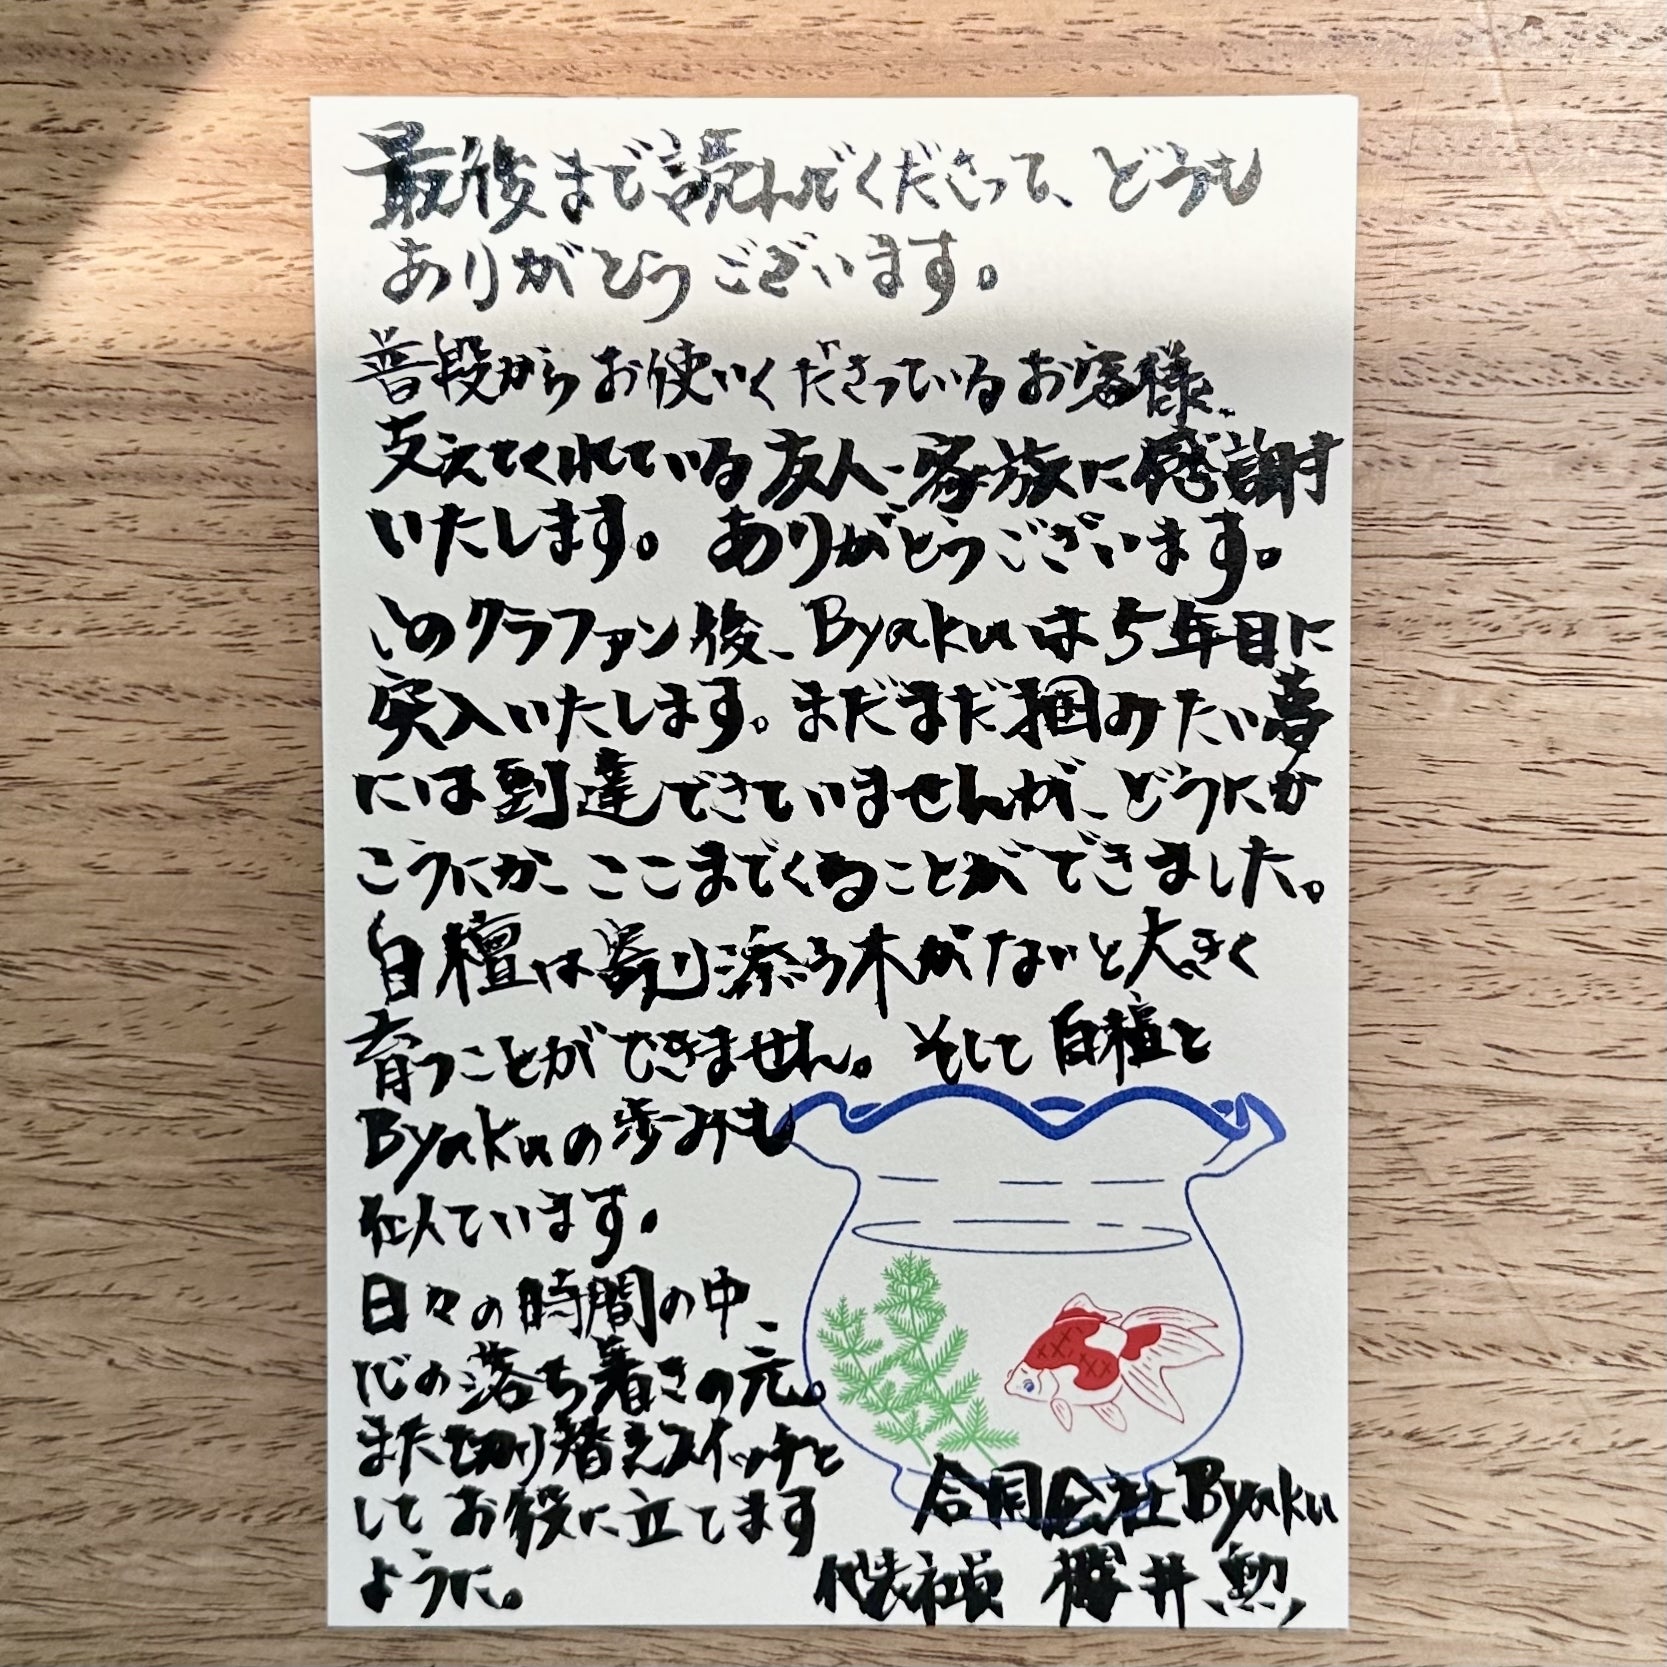 最後まで読んでくださって、どうも
ありがとうございます。
普段からお使いくださっているお客様、
支えてくれている友人、家族に感謝
いたします。ありがとうございます。
このクラファン後、Byakuは5年目に
突入いたします。まだまだ掴みたい夢
には到達できていませんが、どうにか
こうにか、ここまでくることができました。
白檀は寄り添う木がないと大きく
育つことができません。そして白檀と
Byakuの歩みも
似ています。
日々の時間の中、
心の落ち着きの元。
また切り替えスイッチと
してお役に立てます
ように。
合同会社Byaku
代表社員 櫻井 勲